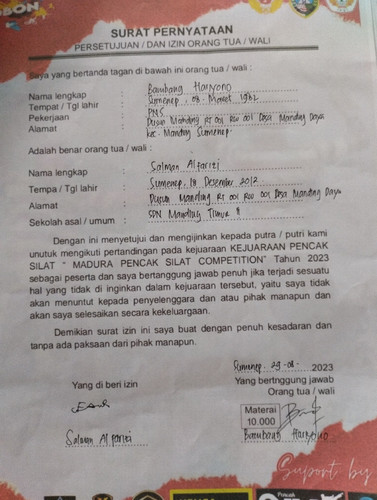 SURAT PERNYATAAN
PERSETUJUAN / DAN IZIN ORANG TUA / WALI
Saya yang bertanda tagan di bawah ini orang tua / wali :
Nama lengkap : Bambang Haryono
Tempat / Tgl lahir : Sumenep, 08 Maret 1982
Pekerjaan : PNS
Alamat : Dusun Manding RT 001 RW 001 Desa Manding Daya
kec. Manding Sumenep
Adalah benar orang tua / wali :
Nama lengkap : Salman Alfarizi
Tempa / Tgl lahir : Sumenep, 18 Desember 2012
Alamat : Dusun Manding RT 001 RW 001 Desa Manding Daya
Sekolah asal / umum : SDN Manding Timur
Dengan ini menyetujui dan mengijinkan kepada putra / putri kami
unutuk mengikuti pertandingan pada kejuaraan KEJUARAAN PENCAK
SILAT " MADURA PENCAK SILAT COMPETITION" Tahun 2023
sebagai peserta dan saya bertanggung jawab penuh jika terjadi sesuatu
hal yang tidak di inginkan dalam kejuaraan tersebut, yaitu saya tidak
akan menuntut kepada penyelenggara dan atau pihak manapun dan
akan saya selesaikan secara kekeluargaan.
Demikian surat izin ini saya buat dengan penuh kesadaran dan
tanpa ada paksaan dari pihak manapun.
Sumenep 29-08- 2023
Yang di beri izin
Yang bertnggung jawab
Orang tua / wali
Materai
10.000
Salman Alfarizi
Bambang Haryono
Suport by